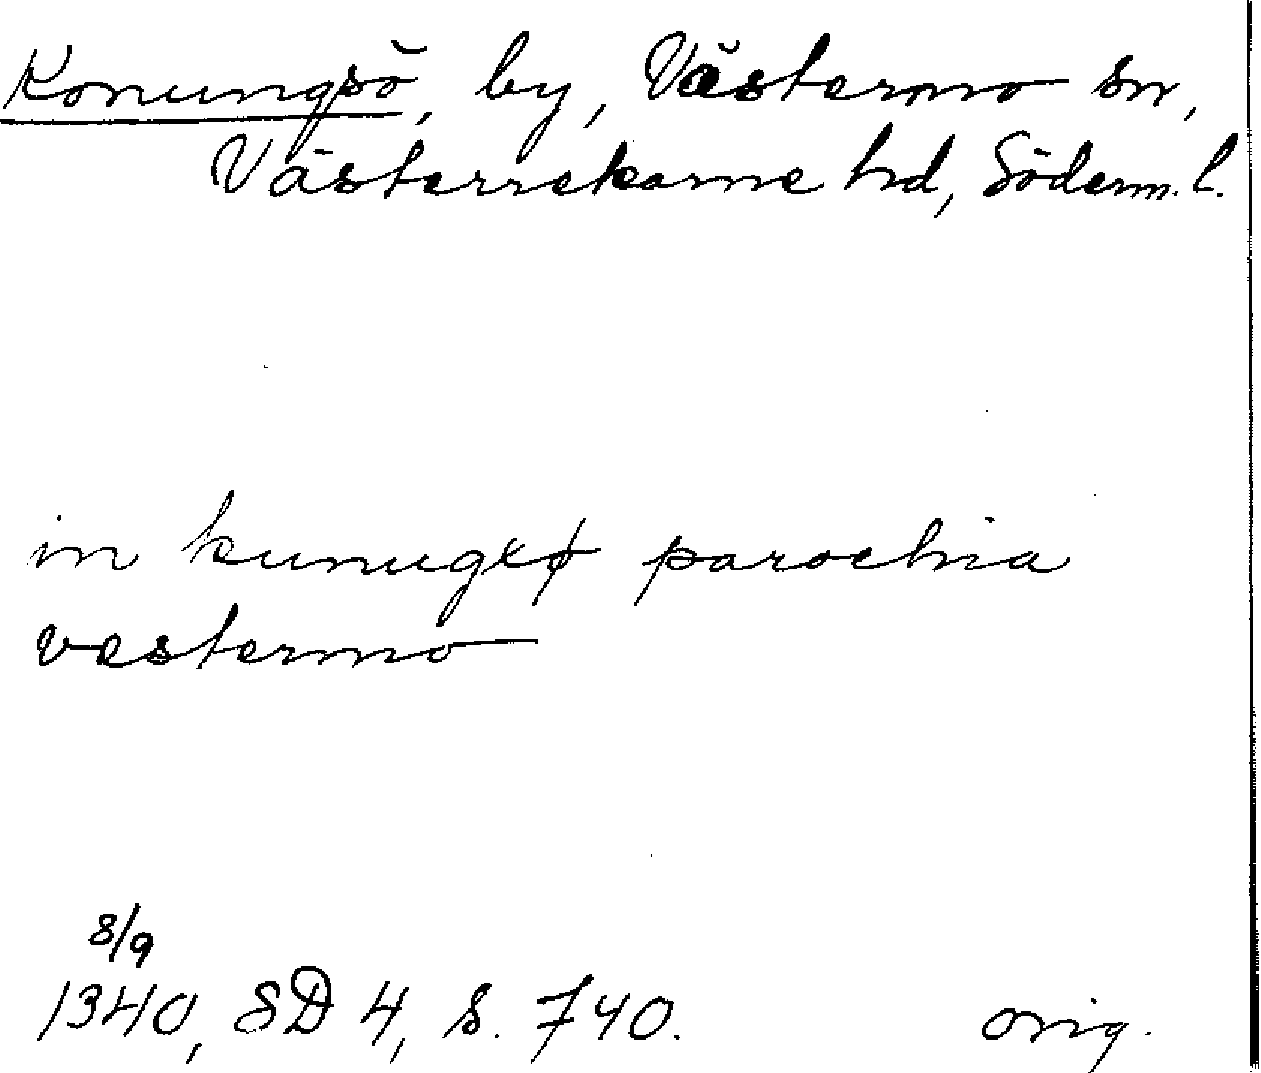 Konungsö, by, Västermo sn,
Västerrekarne hd, Söderm. l.
in kunugxø parochia
vestermo
8/9
1340, SD 4, s. 740.
orig.